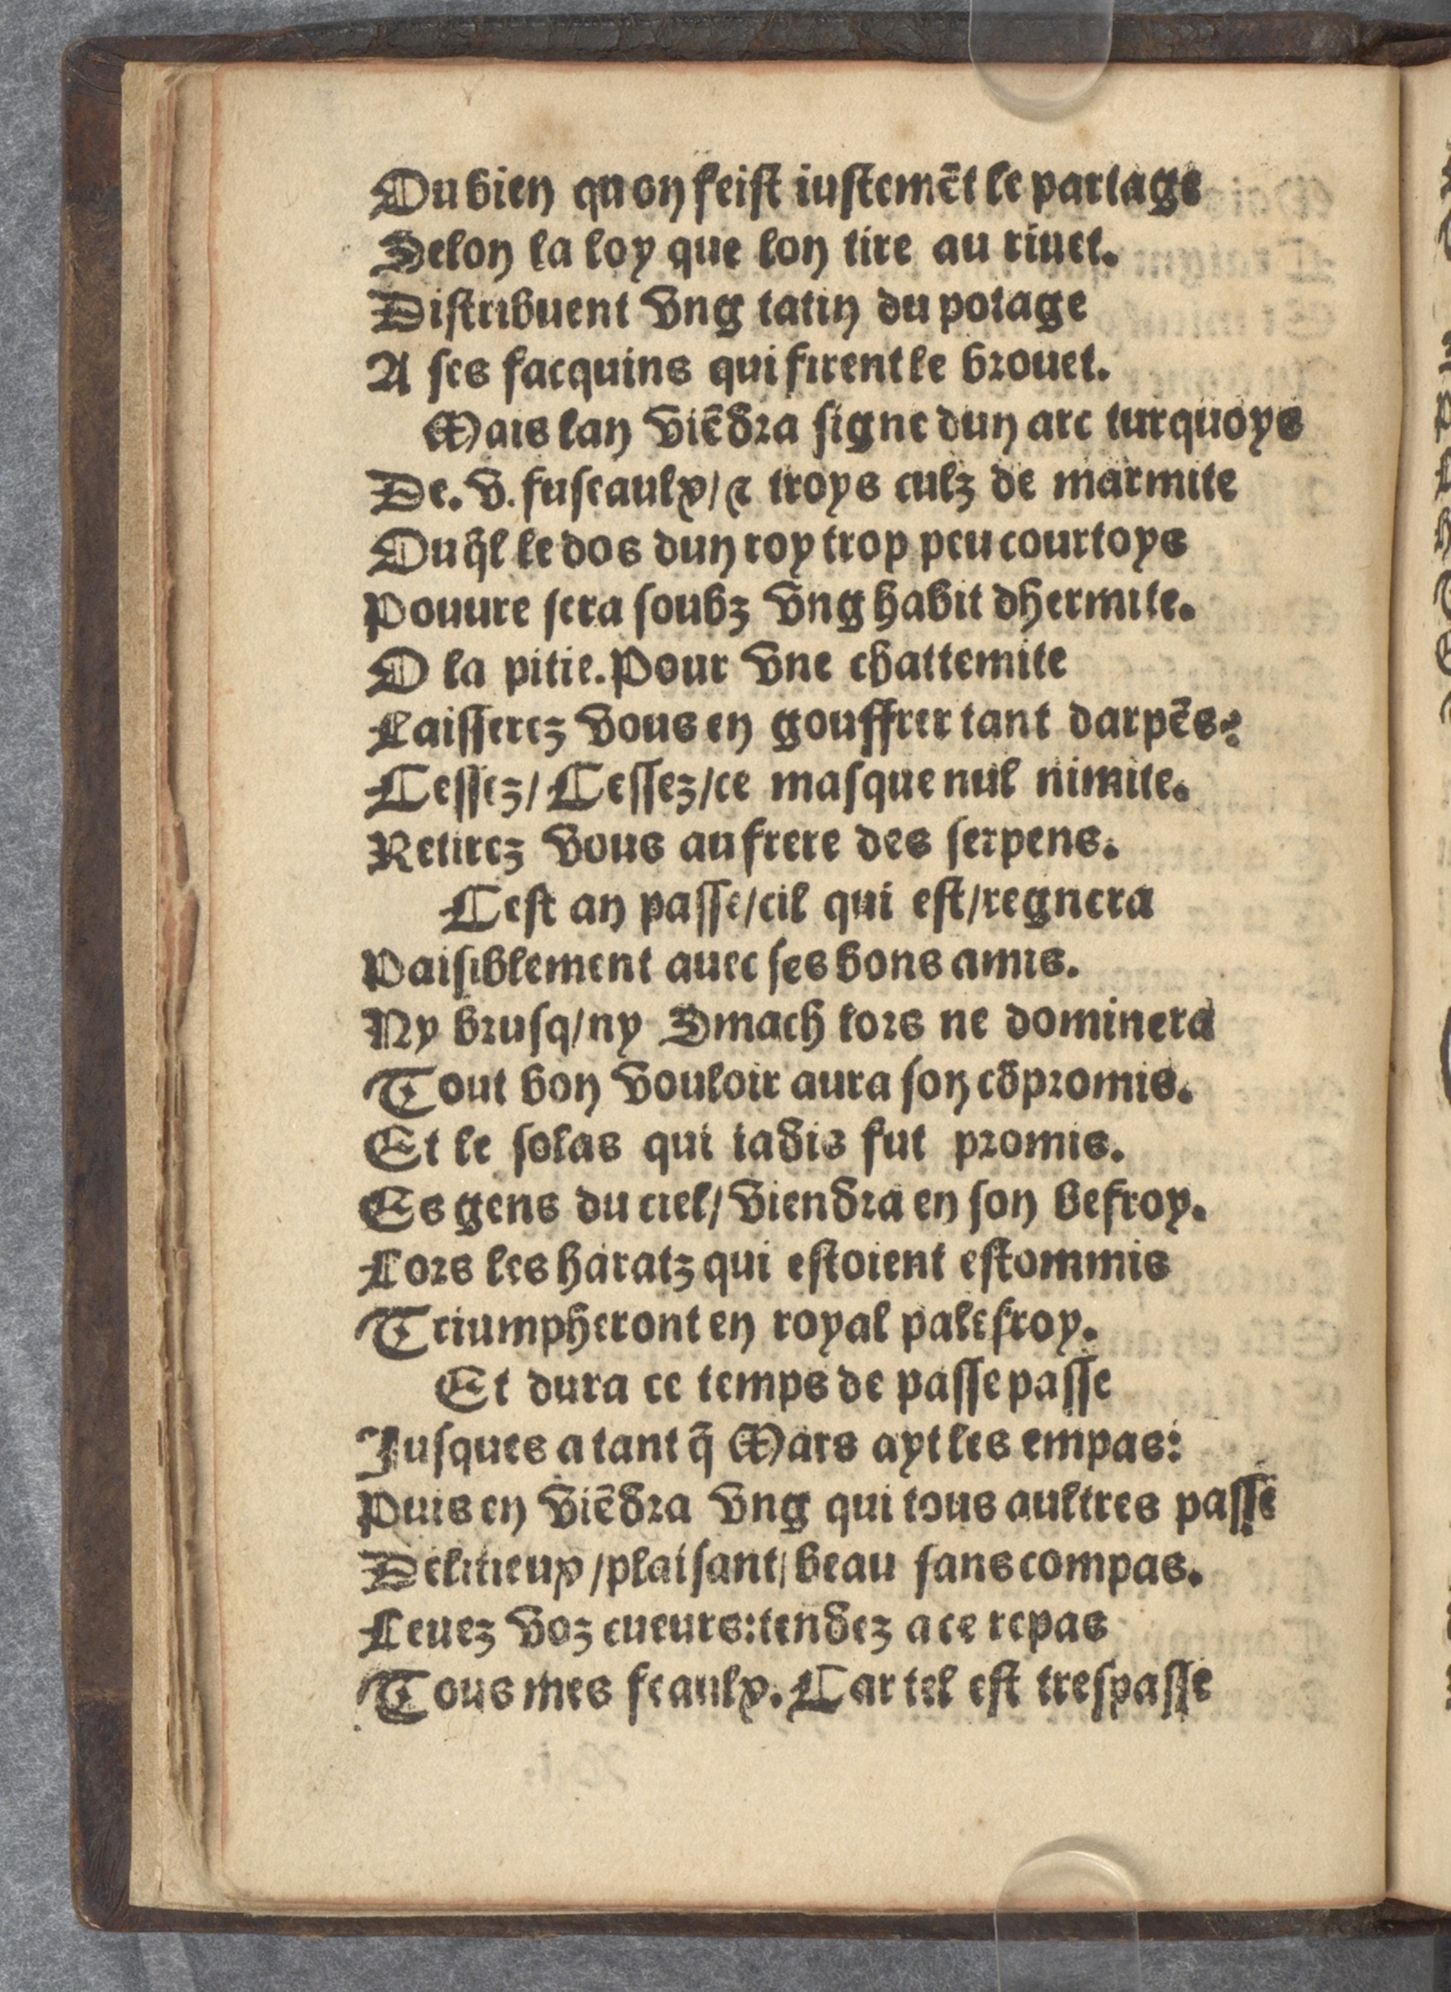 Ou bien qu on feist iustemēt le partage
Selon la loy que lon tire au riuet.
Distribuent vng tatin du potage
A ses facquins qui firent le brouet.
Mais lan viēdra signe dun arc turquoys
De. v. fuseaulx/⁊ troys culz de marmite
Ouq̄l le dos dun roy trop peu courtoys
Pouure sera soubz vng habit dhermite.
O la pitie. Pour vne chattemite
Laisserez vous en gouffrer tant darpēs?
Cessez/ Cessez/ce masque nul nimite.
Retirez vous au frere des serpens.
Cest an passe/cil qui est/regnera
Paisiblement auec ses bons amis.
Ny brusq/ny Smach lors ne dominera
Tout bon vouloir aura son cōpromis.
Et le solas qui iadis fut promis.
Es gens du ciel/ viendra en son befroy.
Lors les haratz qui estoient estommis
Triumpheront en royal palefroy.
Et dura ce temps de passe passe
Jusques a tant q̄ Mars ayt les empas:
Puis en viēdra vng qui tous aultres passe
Delitieux/plaisant/beau sans compas.
Leuez voz cueurs:tendez a ce repas
Tous mes feaulx. Car tel est trespasse